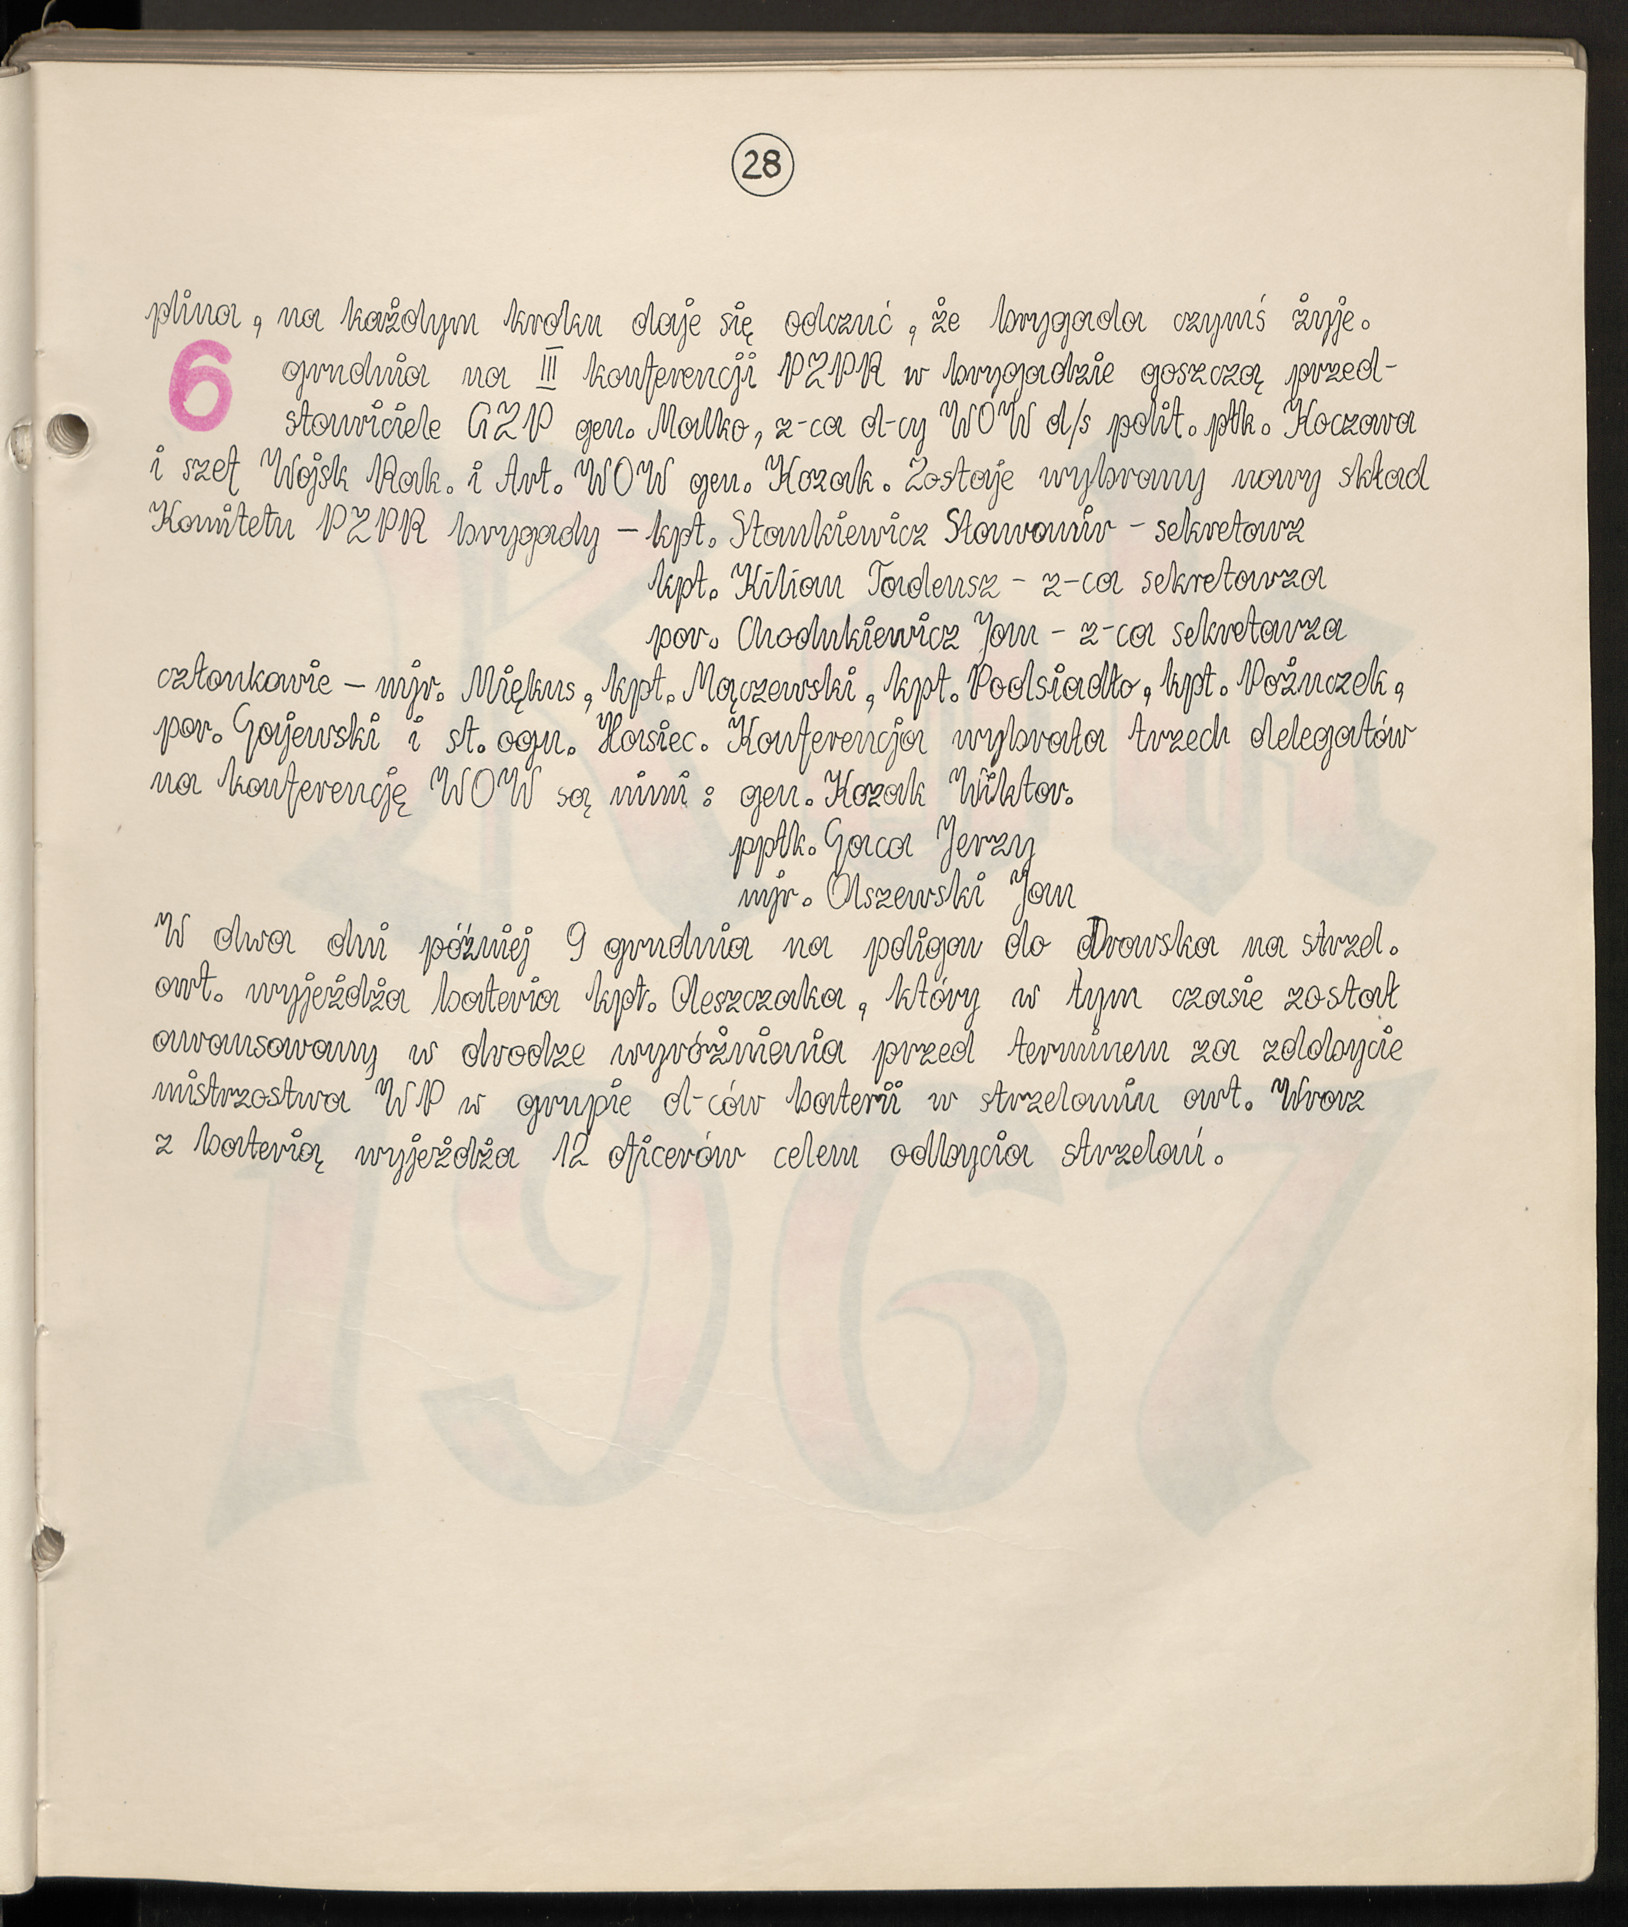 28
plina, na każdym kroku daje się odczuć, że brygada czymś żyje.
6 grudnia na III konferencji PZPR w brygadzie goszczą przed-
stawiciele GZP gen. Malko, z-ca d-cy WOW d/s polit. płk. Koczara
i szef Wojsk Rak. i Art. WOW gen. Kozak. Zostaje wybrany nowy skład
Komitetu PZPR brygady – kpt. Stankiewicz Sławomir – sekretarz
kpt. Kilian Tadeusz – z-ca sekretarza
por. Chodukiewicz Jan – z-ca sekretarza
członkowie – mjr. Miękus, kpt. Mączewski, kpt. Podsiadło, kpt. Pożuczek,
por. Gajewski i st. ogn. Hasiec. Konferencja wybrała trzech delegatów
na konferencję WOW są nimi : gen. Kozak Wiktor.
ppłk. Gaca Jerzy
mjr. Olszewski Jan
W dwa dni później 9 grudnia na poligon do Drawska na strzel.
art. wyjeżdża bateria kpt. Oleszczaka, który w tym czasie został
awansowany w drodze wyróżnienia przed terminem za zdobycie
mistrzostwa WP w grupie d-ców baterii w strzelaniu art. Wraz
z baterią wyjeżdża 12 oficerów celem odbycia strzelań.
Rok
1967